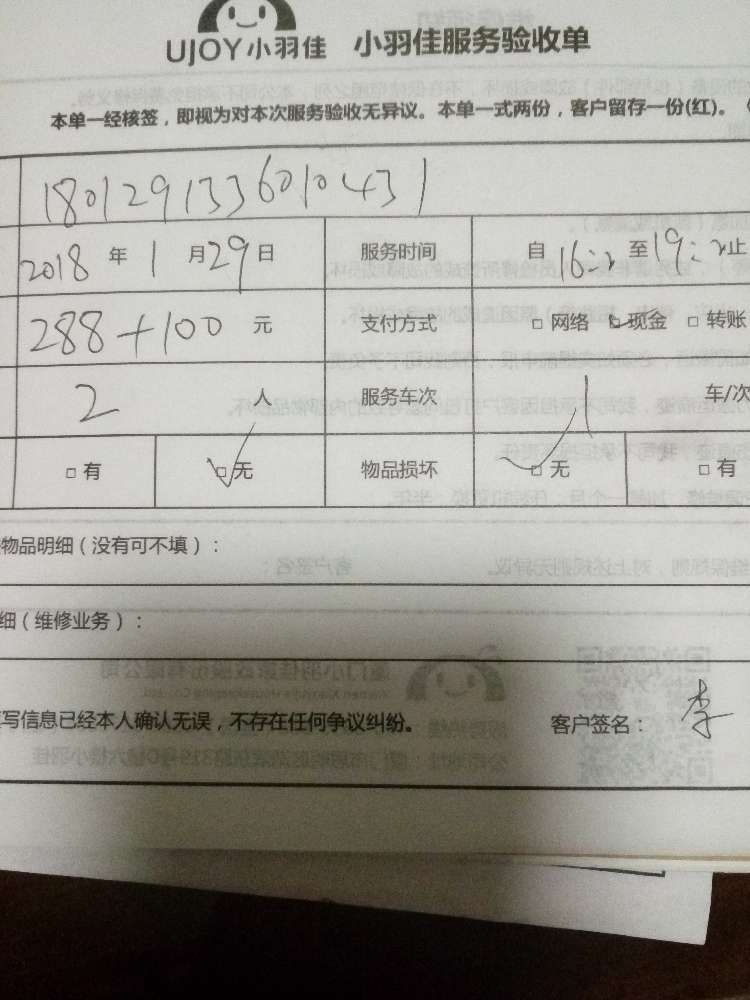 UJOY小羽佳 小羽佳服务验收单
本单一经核签，即视为对本次服务验收无异议。本单一式两份，客户留存一份(红)。
1801291336010431
2018 年 1 月 29 日 服务时间 自 16: 至 19: 止
288+100 元 支付方式 □ 网络 □ 现金 □ 转账
2 人 服务车次 1 车/次
□ 有 □ 无 物品损坏 □ 无 □ 有
物品明细（没有可不填）：
细（维修业务）：
写信息已经本人确认无误，不存在任何争议纠纷。 客户签名： 李